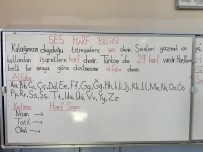 SES HARF BİLGİSİ
Kulağımızın duyduğu titreşimlere ses denir. Sesleri yazmak için
kullanılan işaretlere harf denir. Türkçe'de 29 harf vardır. Harflerin
belli bir sıraya göre dizilmesine alfabe denir.
Alfabe
Aa, Bb, Cc, Çç, Dd, Ee, Ff, Gg, Ğğ, Hh, Iı, İi, Jj, Kk, Ll, Mm, Nn, Oo, Öö
Pp, Rr, Ss, Şş, Tt, Uu, Üü, Vv, Yy, Zz
Kelime Harf Sayısı
Nisan →
Tatil →
Okul →